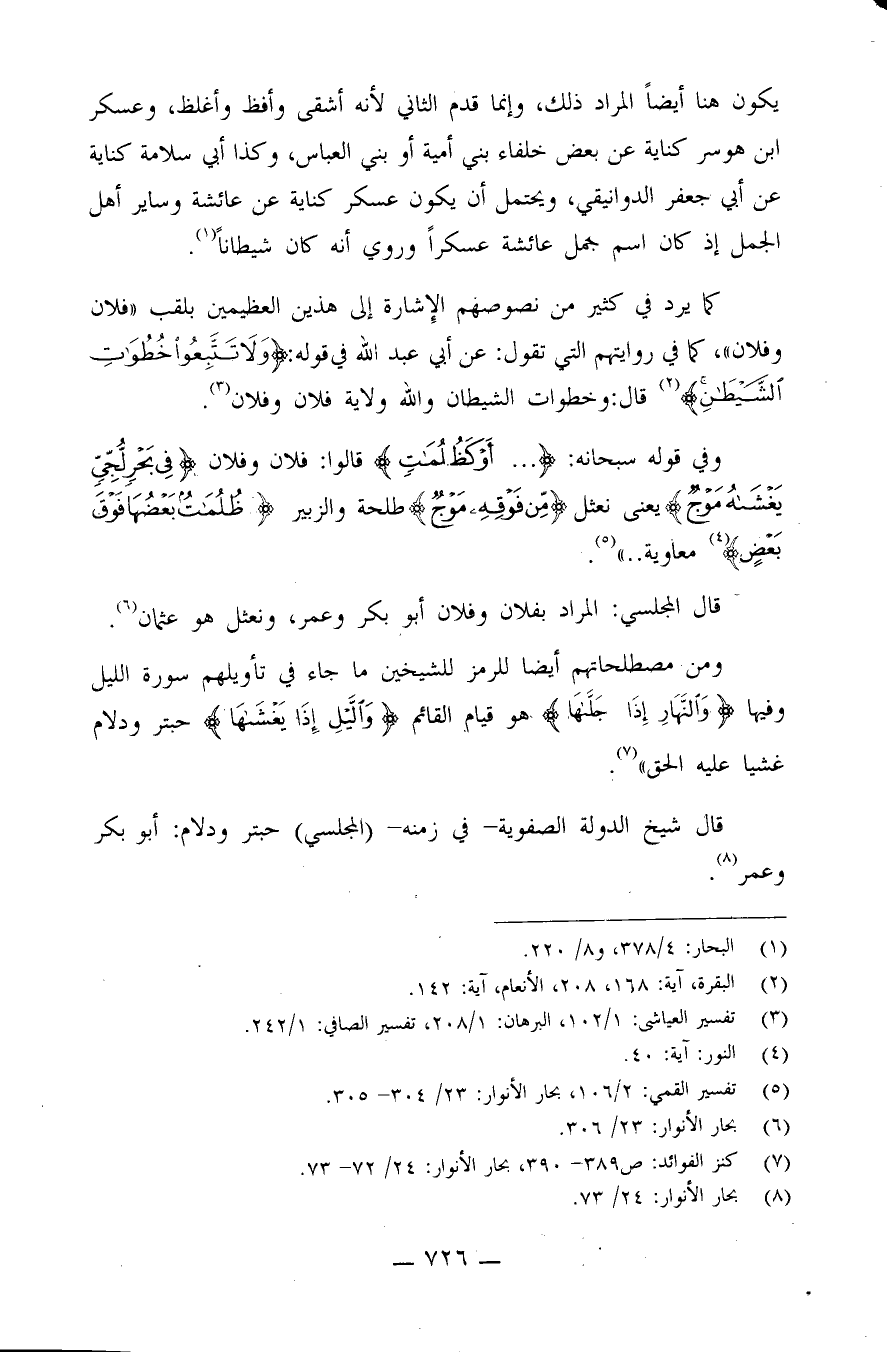 يكون هنا أيضاً المراد ذلك، وإنما قدم الثاني لأنه أشقى وأفظ وأغلظ، وعسكر
ابن هوسر كناية عن بعض خلفاء بني أمية أو بني العباس، وكذا أبي سلامة كناية
عن أبي جعفر الدوانيقي، ويحتمل أن يكون عسكر كناية عن عائشة وساير أهل
الجمل إذ كان اسم جمل عائشة عسكراً وروي أنه كان شيطاناً(١).
كما يرد في كثير من نصوصهم الإشارة إلى هذين العظيمين بلقب «فلان
وفلان»، كما في روايتهم التي تقول: عن أبي عبد الله في قوله: ﴿وَلَا تَتَّبِعُوا۟ خُطُوَٰتِ
ٱلشَّيْطَٰنِۚ﴾(٢) قال: وخطوات الشيطان والله ولاية فلان وفلان(٣).
وفي قوله سبحانه: ﴿... أَوْ كَظُلُمَٰتٍ﴾ قالوا: فلان وفلان ﴿فِى بَحْرٍ لُّجِّىٍّ
يَغْشَىٰهُ مَوْجٌ﴾ يعنى نعثل ﴿مِّن فَوْقِهِۦ مَوْجٌ﴾ طلحة والزبير ﴿ظُلُمَٰتٌۢ بَعْضُهَا فَوْقَ
بَعْضٍ﴾(٤) معاوية..»(٥).
قال المجلسي: المراد بفلان وفلان أبو بكر وعمر، ونعثل هو عثمان(٦).
ومن مصطلحاتهم أيضا للرمز للشيخين ما جاء في تأويلهم سورة الليل
وفيها ﴿وَٱلنَّهَارِ إِذَا جَلَّىٰهَا﴾ هو قيام القائم ﴿وَٱلَّيْلِ إِذَا يَغْشَىٰهَا﴾ حبتر ودلام
غشيا عليه الحق»(٧).
قال شيخ الدولة الصفوية– في زمنه– (المجلسي) حبتر ودلام: أبو بكر
وعمر(٨).
(١) البحار: ٣٧٨/٤، و٨/ ٢٢٠.
(٢) البقرة، آية: ١٦٨، ٢٠٨، الأنعام، آية: ١٤٢.
(٣) تفسير العياشى: ١٠٢/١، البرهان: ٢٠٨/١، تفسير الصافي: ٢٤٢/١.
(٤) النور: آية: ٤٠.
(٥) تفسير القمي: ١٠٦/٢، بحار الأنوار: ٢٣/ ٣٠٤– ٣٠٥.
(٦) بحار الأنوار: ٢٣/ ٣٠٦.
(٧) كنز الفوائد: ص٣٨٩– ٣٩٠، بحار الأنوار: ٢٤/ ٧٢– ٧٣.
(٨) بحار الأنوار: ٢٤/ ٧٣.
— ٧٢٦ —